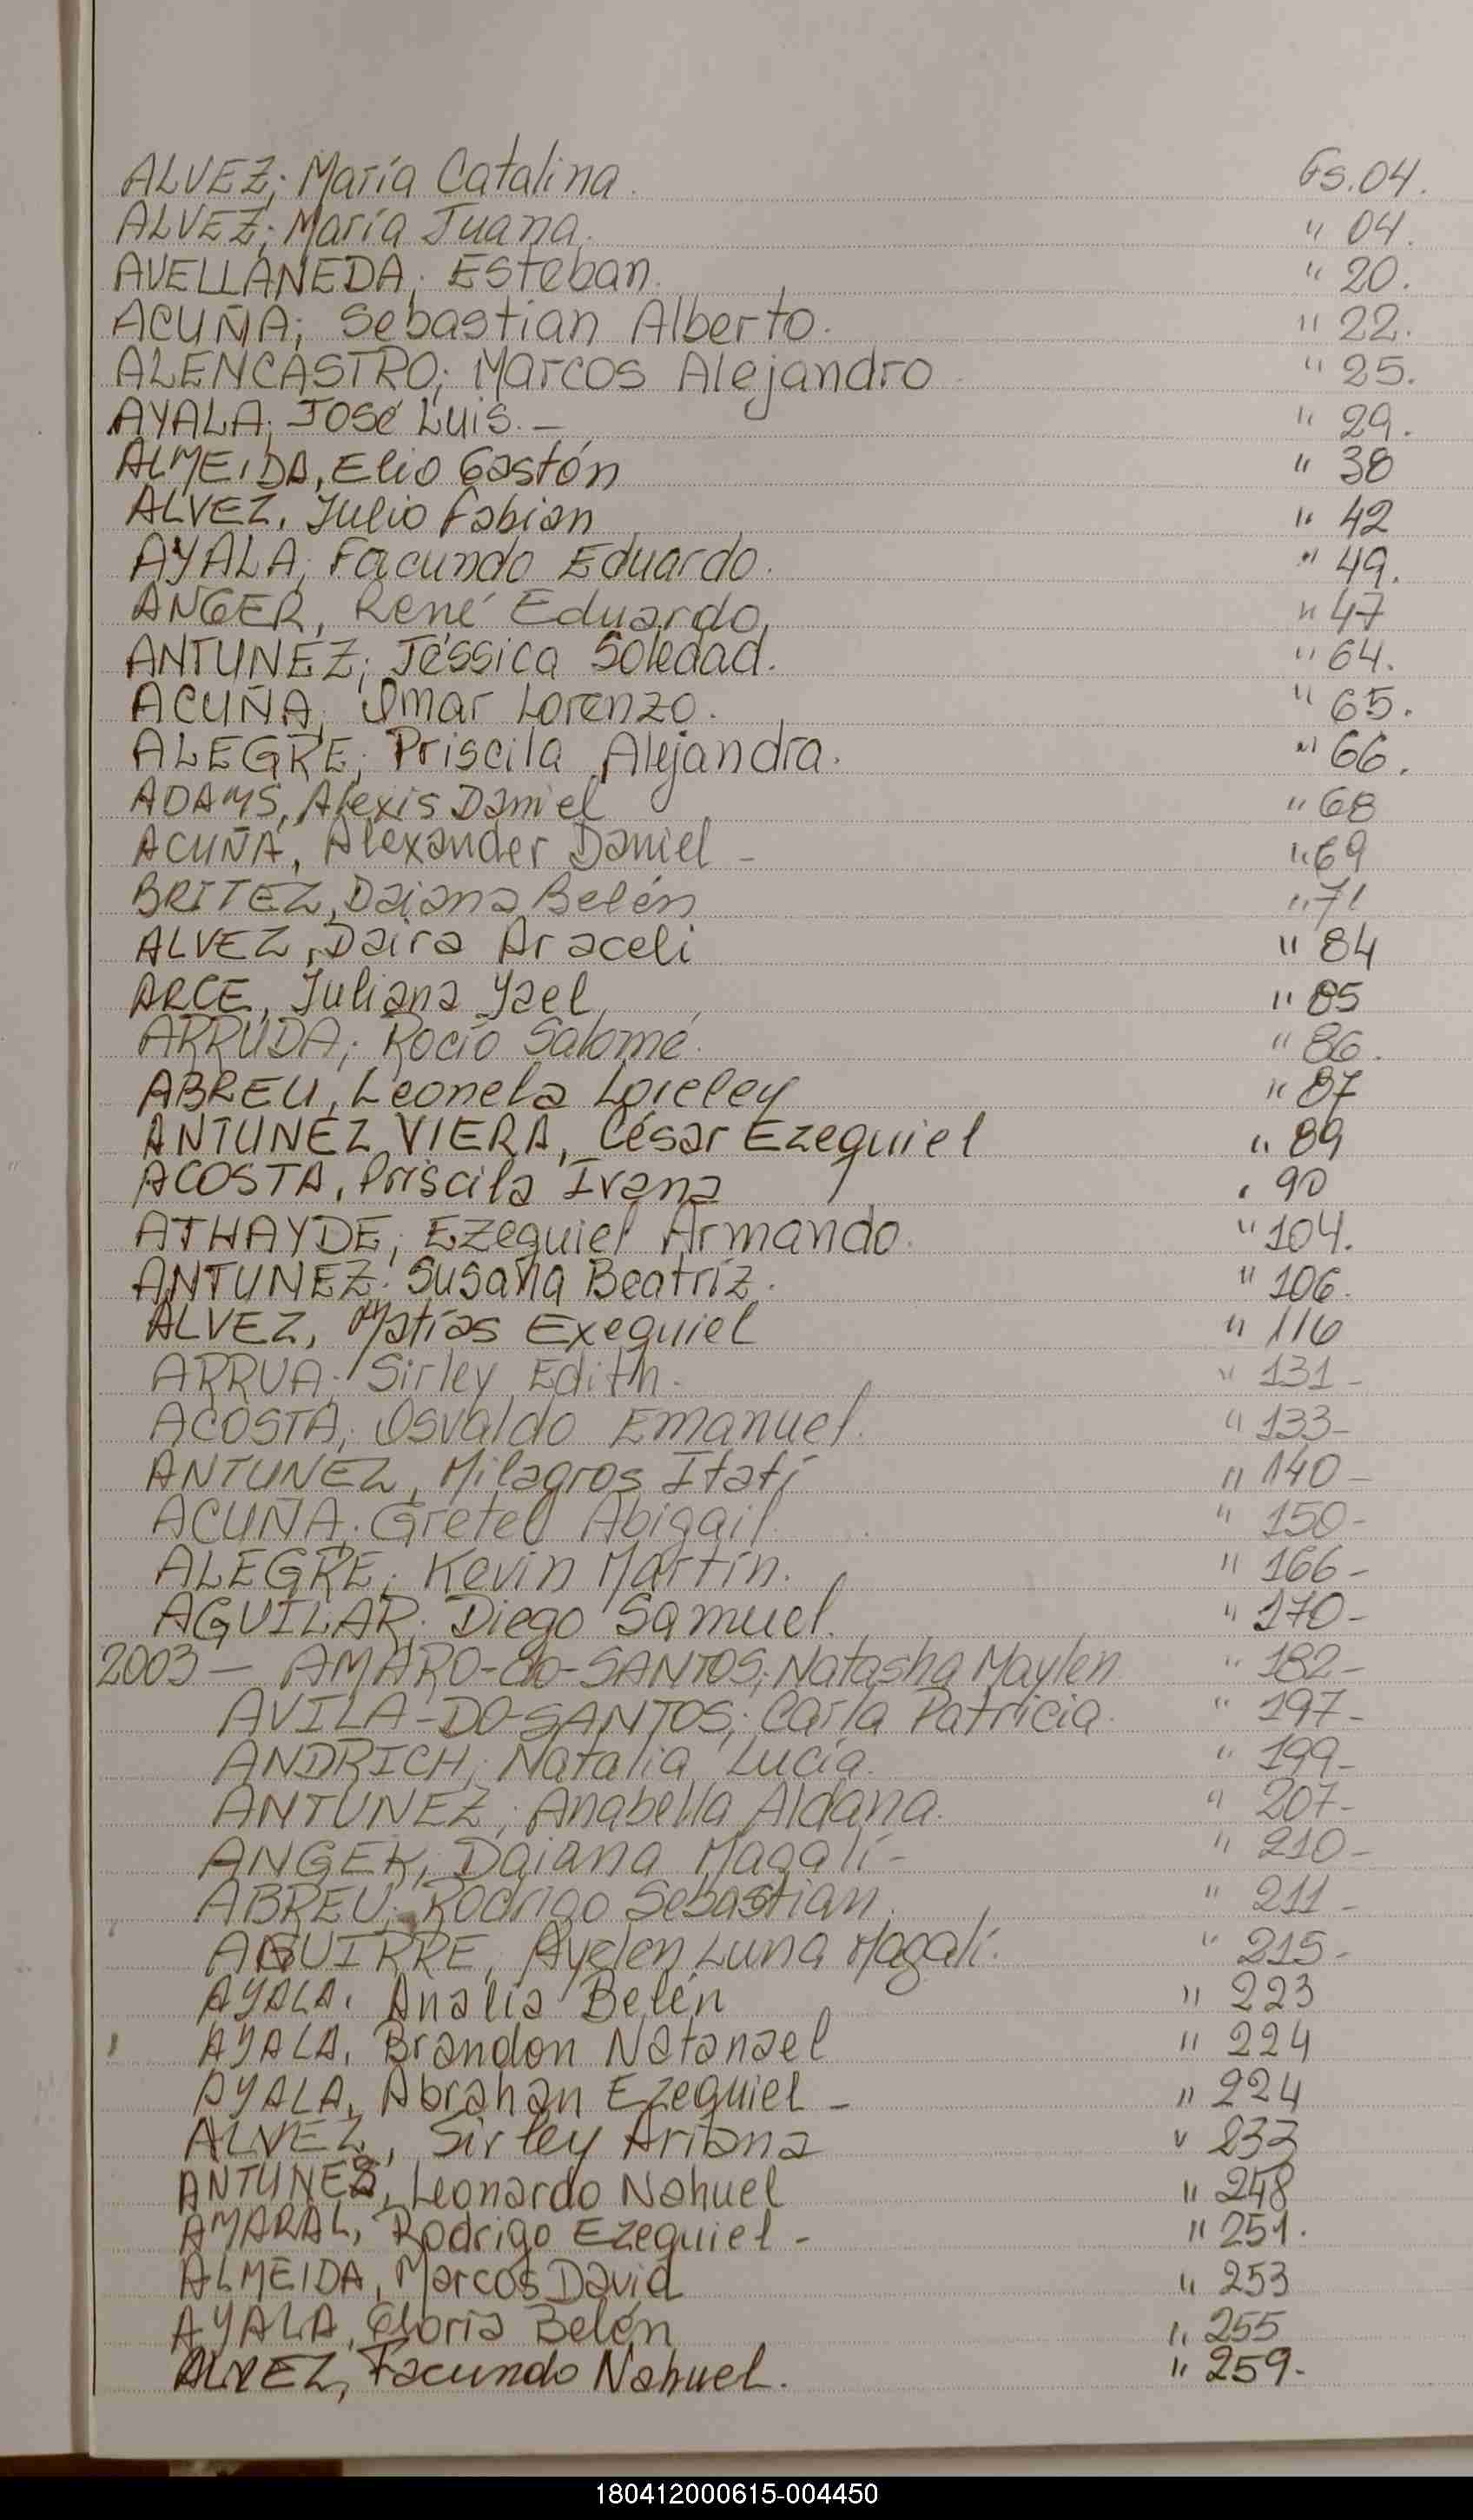 ALVEZ; María Catalina. Fs. 04.
ALVEZ; María Juana. " 04.
AVELLANEDA; Esteban. " 20.
ACUÑA; Sebastian Alberto. " 22.
ALENCASTRO; Marcos Alejandro " 25.
AYALA; José Luis. — " 29.
ALMEIDA, Elio Gastón " 38
ALVEZ, Julio Fabian " 42
AYALA; Facundo Eduardo. " 49.
ANGER, René Eduardo. " 47
ANTUNEZ; Jéssica Soledad. " 64.
ACUÑA; Omar Lorenzo. " 65.
ALEGRE; Priscila Alejandra. " 66.
ADAMS, Alexis Daniel " 68
ACUÑA, Alexander Daniel - " 69
BRITEZ, Daiana Belén " 71
ALVEZ, Daira Araceli " 84
ARCE, Juliana Yael " 85
ARRUDA; Rocío Salomé. " 86.
ABREU, Leonela Loreley " 87
ANTUNEZ VIERA, César Ezequiel " 89
ACOSTA, Priscila Ivana " 90
ATHAYDE; Ezequiel Armando. " 104.
ANTUNEZ; Susana Beatríz. " 106.
ALVEZ, Matías Exequiel " 116
ARRUA; Sirley Edith. " 131-
ACOSTA; Osvaldo Emanuel. " 133-
ANTUNEZ, Milagros Itatí " 140-
ACUÑA; Gretel Abigail. " 150-
ALEGRE; Kevin Martín. " 166-
AGUILAR; Diego Samuel. " 170-
2003 — AMARO-do-SANTOS; Natasha Maylen " 182-
AVILA-DO-SANTOS; Carla Patricia. " 197-
ANDRICH; Natalia Lucía. " 199-
ANTUNEZ; Anabella Aldana. " 207-
ANGER, Daiana Magalí- " 210-
ABREU; Rodrigo Sebastian. " 211-
AGUIRRE; Ayelen Luna Magalí. " 215-
AYALA, Analía Belén " 223
AYALA, Brandon Natanael " 224
AYALA, Abrahan Ezequiel - " 224
ALVEZ, Sirley Ariana " 233
ANTUNES, Leonardo Nahuel " 248
AMARAL, Rodrigo Ezequiel - " 251.
ALMEIDA, Marcos David " 253
AYALA, Gloria Belén " 255
ALVEZ, Facundo Nahuel. " 259-
180412000615-004450